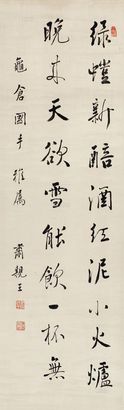 緑螘新醅酒紅泥小火爐
晚來天欲雪能飲一杯無
龜倉國手雅屬
肅親王